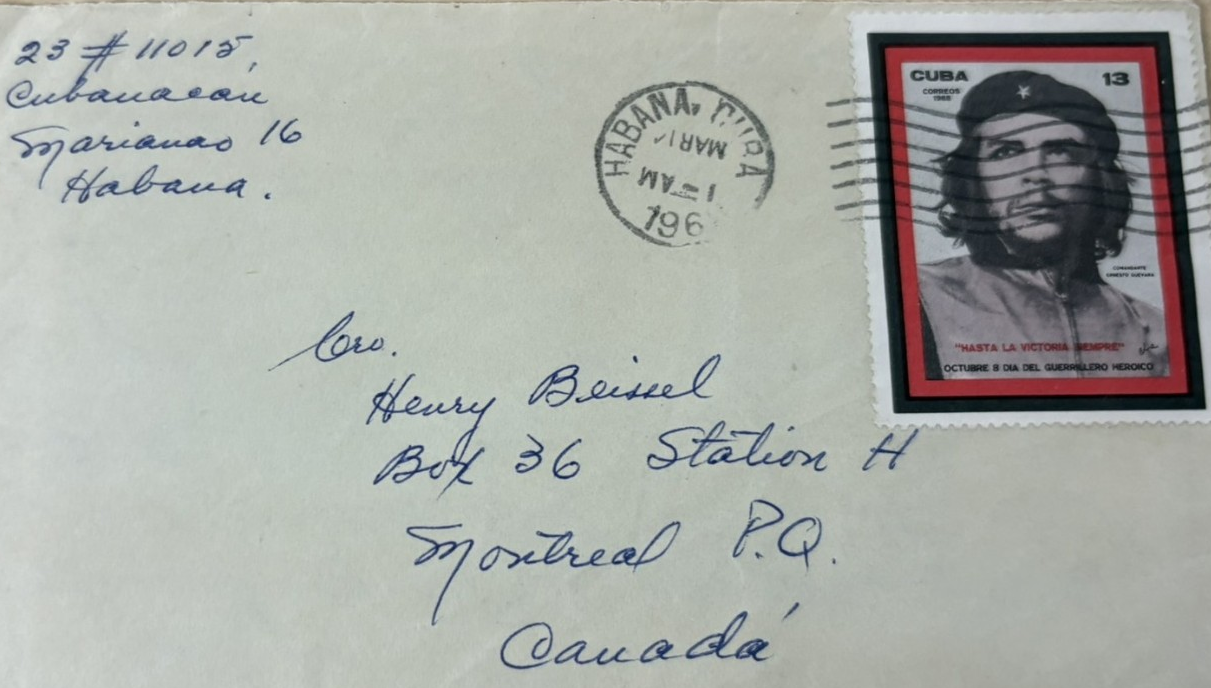 23 # 11015,
Cubanacán
Marianao 16
Habana.
HABANA, CUBA
MAR
AM
196
CUBA 13
CORREOS
1968
COMANDANTE
ERNESTO GUEVARA
"HASTA LA VICTORIA SIEMPRE"
OCTUBRE 8 DIA DEL GUERRILLERO HEROICO
Cro.
Henry Beissel
Box 36 Station H
Montreal P.Q.
Canadá